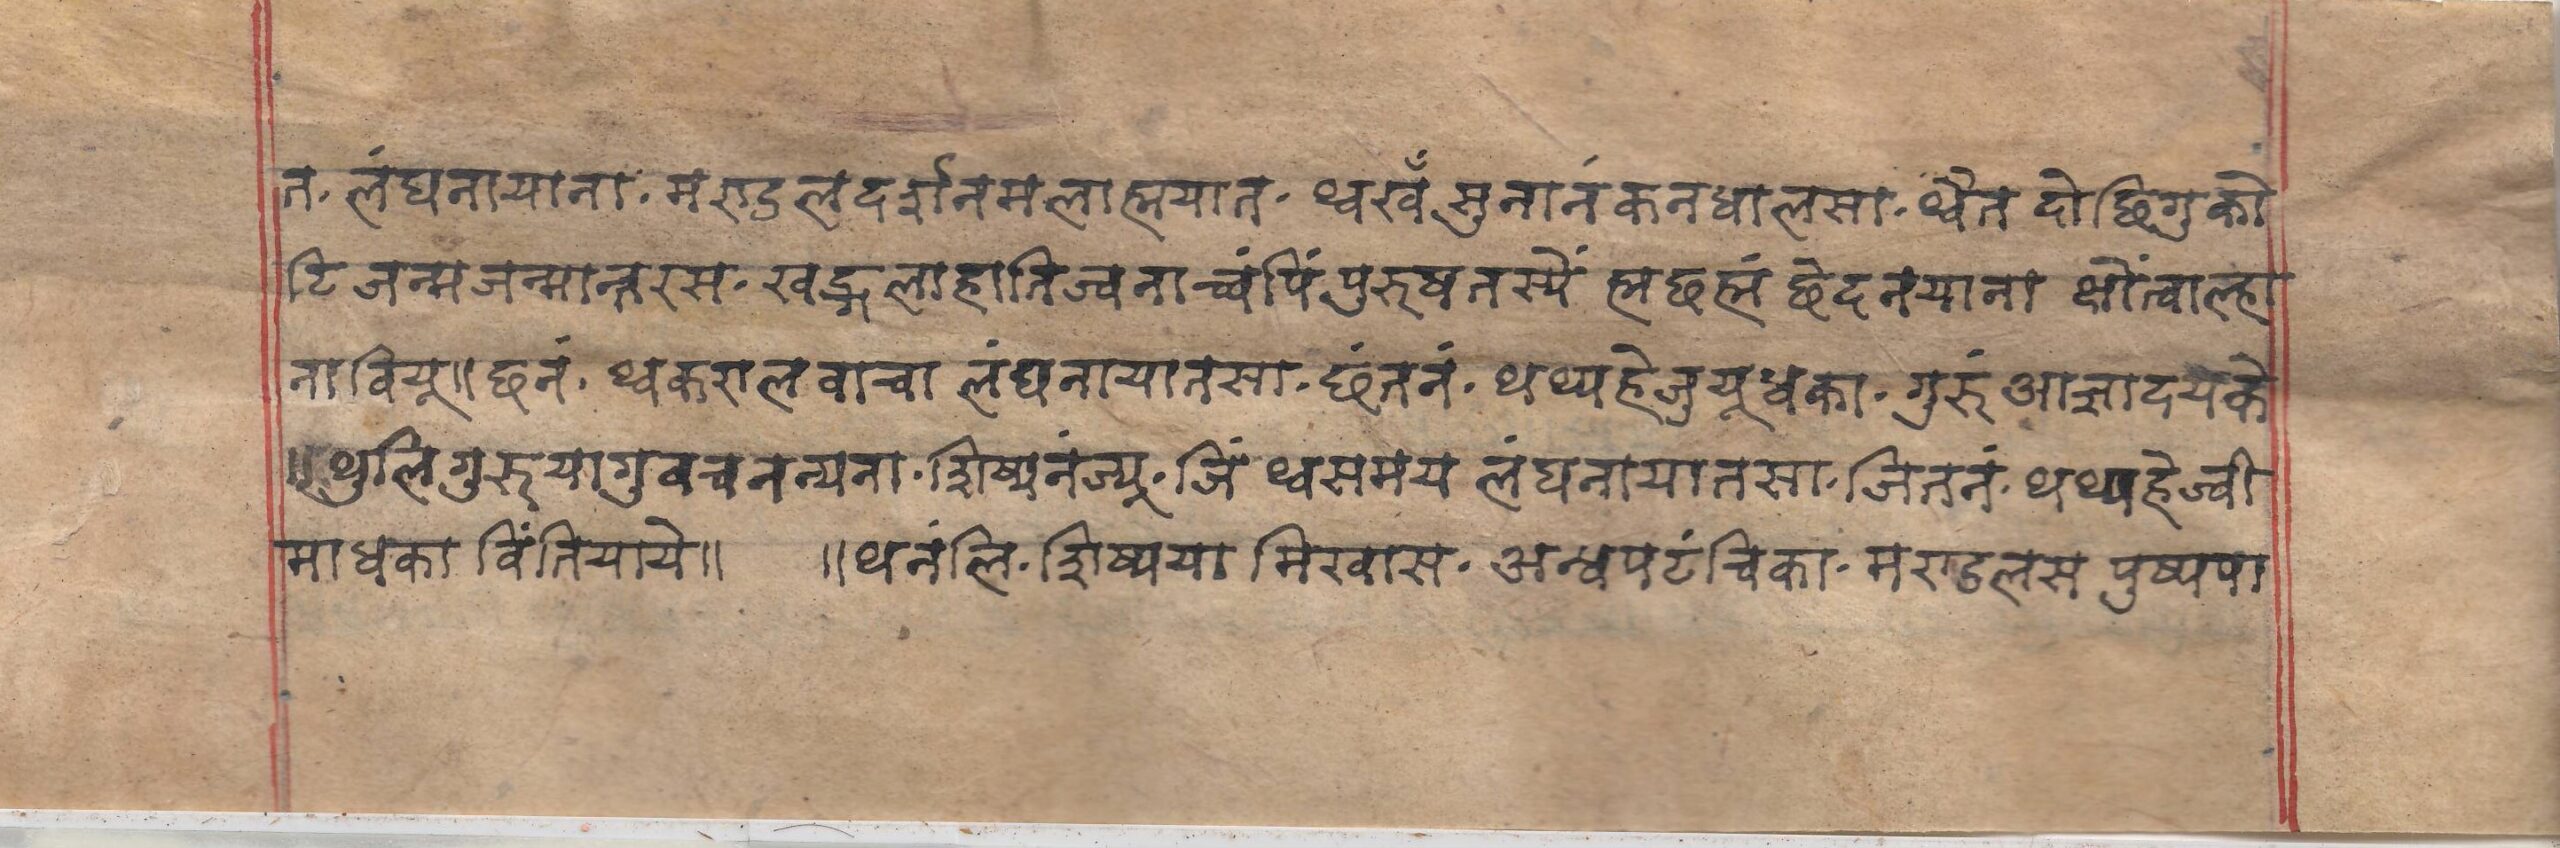 त. लंघनायाना. मण्डलदर्शनमलाह्मयात. थ्वखँ सुनानंकनधालसा. थ्वैत दोछिगुको
टि जन्मजन्मान्तरस. खड्गलाहातिज्वनाच्वंपिं पुरुषतस्यें ह्मछह्मं छेदनयाना क्षोंत्वाल्हा
नावियू॥ छनं. थ्वकरालवाचा लंघनायातसा. छंतनं. थथ्यहेजुयूधका. गुरुं आज्ञादयके
॥ थुलिगुरुयागुवचनन्यना. शिष्यनंज्यू. जिं थ्वसमय लंघनायातसा. जितनं. थथ्यहेज्वी
माधका विंतियाये॥ ॥ थनंलि. शिष्यया मिखास. अन्धपटंचिका. मण्डलस पुष्पपा